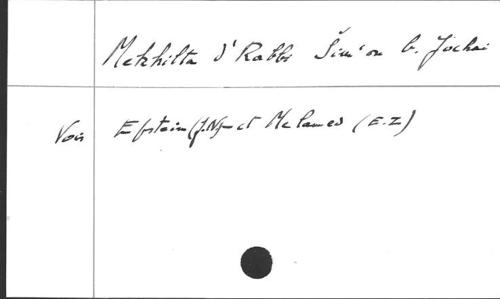 Mekhilta d'Rabbi Šim'on b. Jochai
Voir Epstein (J.N) et Melamed (E.Z)